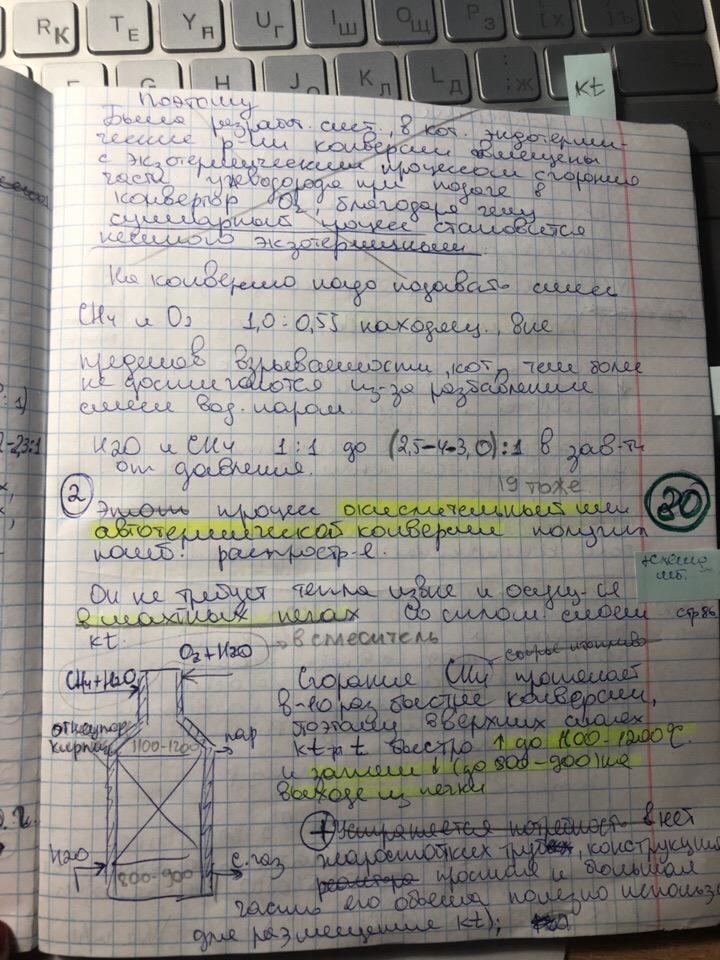 R К
T Е
Y Н
U Г
I Ш
O Щ
P З
[ Х
] Ъ
G
H
J О
K Л
L Д
; Ж
kt
Поэтому
Была разработ. сист., в кот. эндотерми-
ческие р-ии конверсии совмещены
с экзотермическим процессом сгорания
части углеводорода при подаче в
конвертор O2, благодаря чему
суммарный процесс становится
немного экзотермичным.
На конверсию надо подавать смеси
CH4 и O2 1,0:0,55 находящ. вне
пределов взрываемости, кот. тем более
не достигаются из-за разбавления
смеси вод. паром.
H2O и CH4 1:1 до (2,5-4-3,0):1 в зав-ти
от давления.
19 тоже
2 Этот процесс окислительный или
20
автотермической конверсии получил
наиб! распростр-е.
Он не требует тепла извне и осущ-ся
в шахтных печах со сплош слоем
стр 86
kt.
O2+H2O → в смеситель
CH4+H2O
Сгорание CH4 протекает
в 10 раз быстрее конверсии,
поэтому в верхних слоях
kt-р t быстро ↑ до 1100-1200°C
и затем ↓ (до 800-900) на
выходе из печки
огнеупор.
кирпич
1100-1200
пар
H2O
800-900
с. газ
+ Устраняется потребность в нет
жаростойких труб, конструкция
реактора простая и большая
часть его объема полезно использ
для размещения kt);